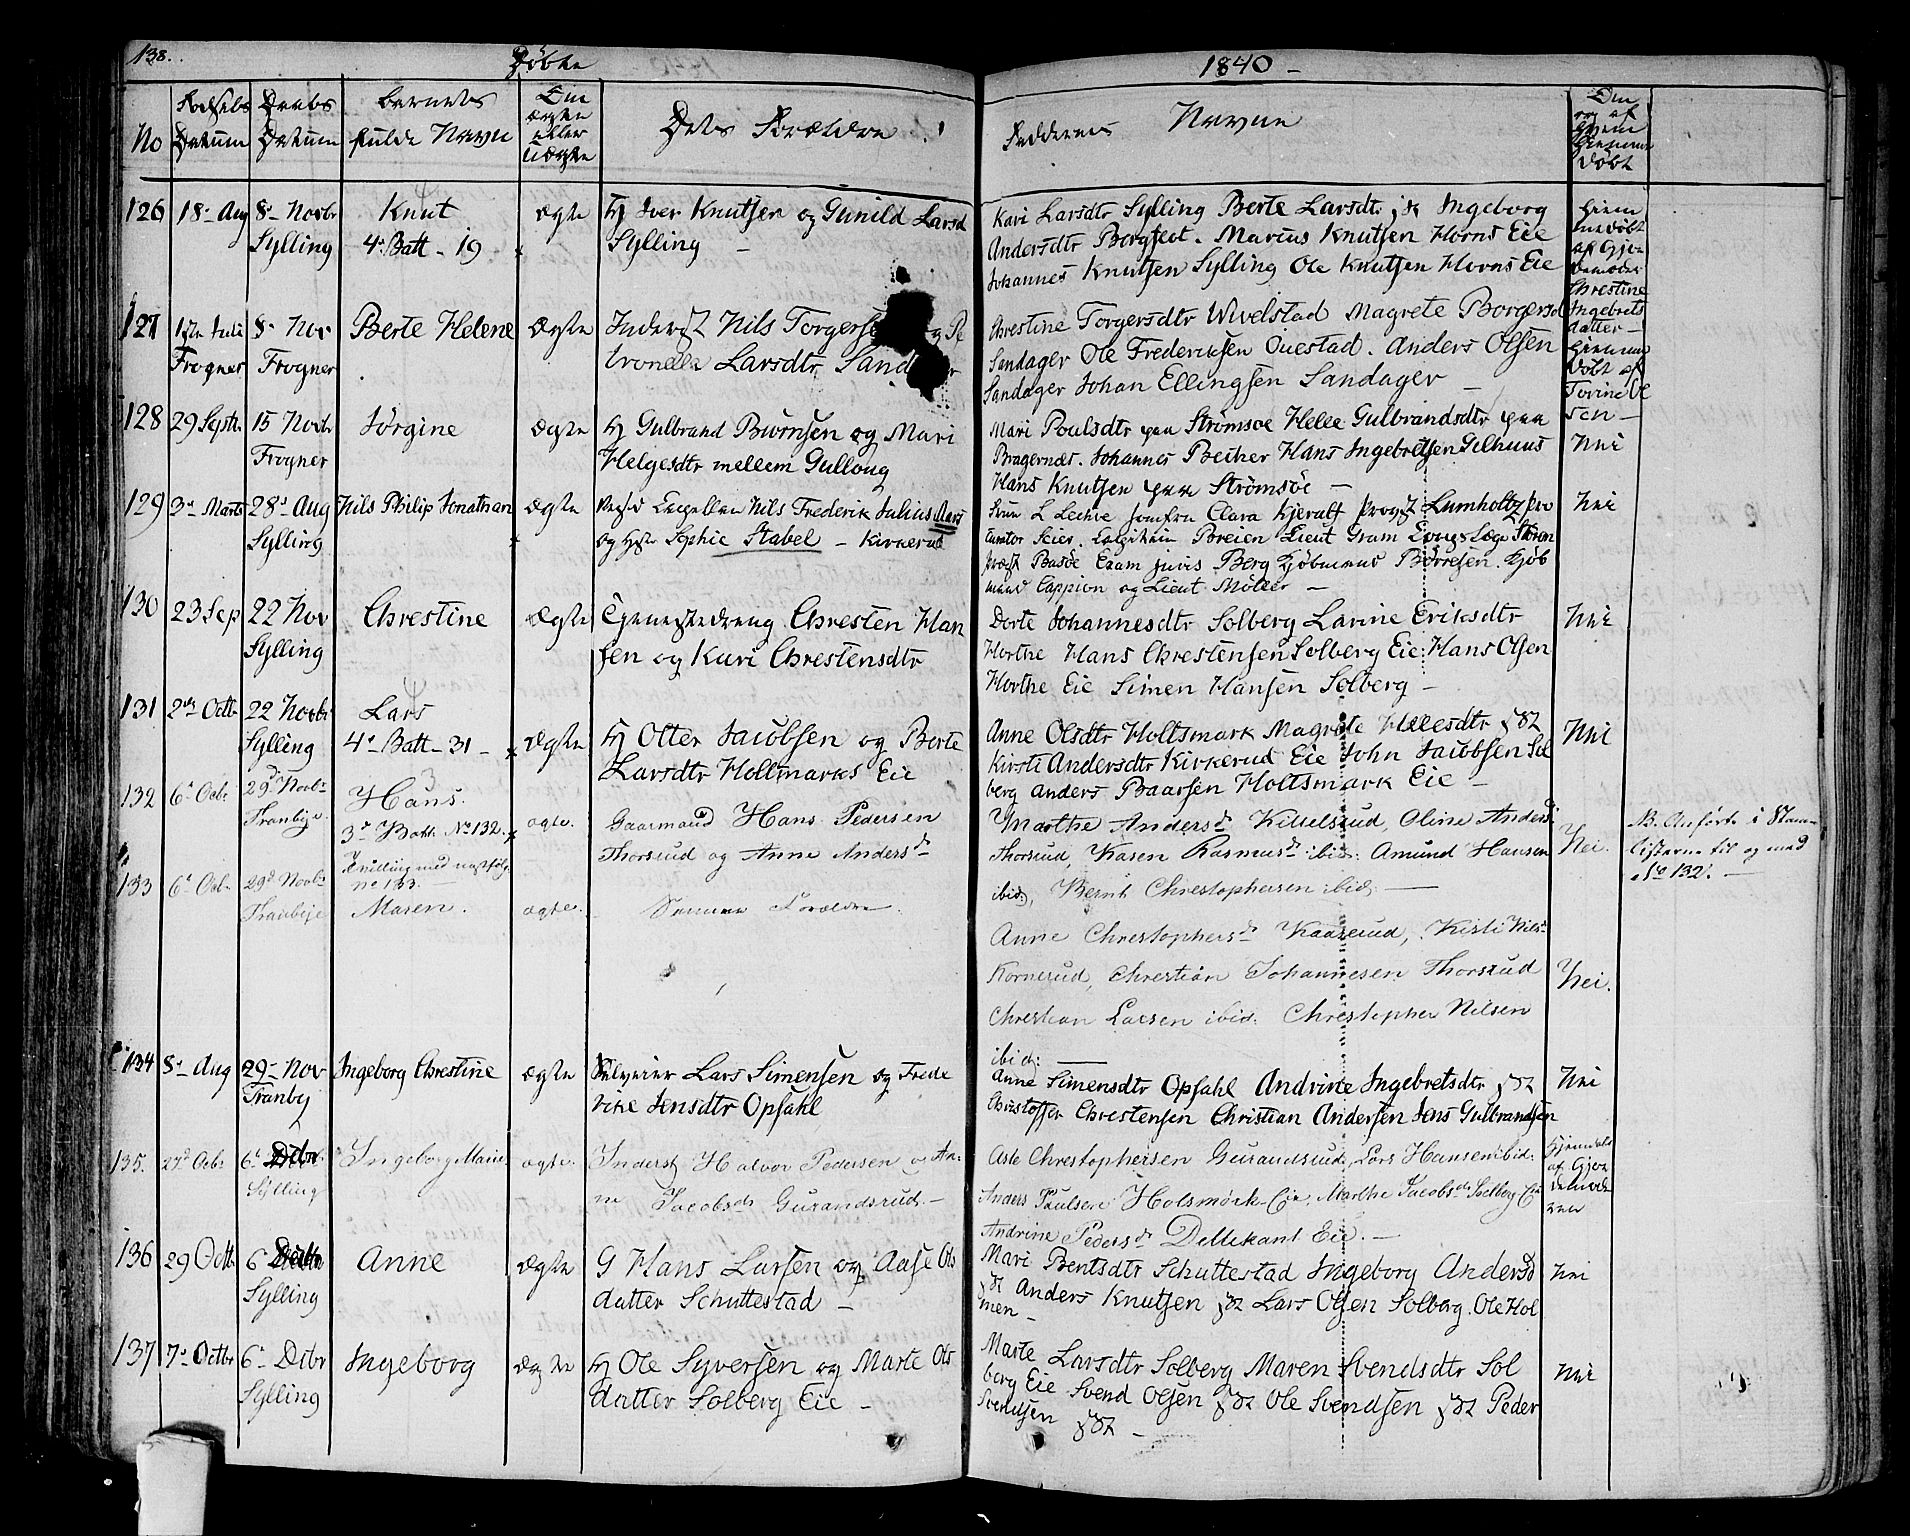 138.
Døbte
1840 –
No
Fødsels Datum
Daabs Datum
Barnets fulde Navn
Om ægte eller Uægte
Dets Forældre
Faddernes Navne
Om og af hvem hjemmedøbt
126 18de Aug 8de Novbr Knut ægte Hj Iver Knutsen og Gunild Larsd
Sylling 4de Batt – 19 Sylling –
Kari Larsdtr Sylling Berte Larsdtr Ingeborg
Andersdtr Borgset. Marius Knutsen Horns Eie
Johannes Knutsen Sylling Ole Knutsen Horns Eie
Hjem
medøbt
af Gjor
demoder
Christine
Ingebrets
datter –
127 1ste Juli 8de Nov Berte Helene Ægte Inderst Nils Torgersen og Pe
Frogner Frogner tronelle Larsdtr Sand
Chrestine Torgersdtr Wivelstad Magrete Borgersd
Sandager Ole Frederiksen Ouestad. Anders Olsen
Sandager Johan Ellingsen Sandager –
Hjemm
døbt af
Torine Ol
sen –
128 29 Septr 15 Novbr Jørgine Ægte Hj Gulbrand Biørnsen og Mari
Frogner Helgesdtr mellem Gulloug
Mari Poulsdtr paa Strømsøe Helle Gulbrandsdtr paa
Bragernæs. Johannes Becher Hans Ingebretsen Gilhuus
Hans Knutsen paa Strømsøe –
Nei
129 3de Marts 28de Aug Nils Philip Jonathan ægte Capellan Nils Frederik Julius Aars
Sylling og Hstr Sophie Stabel – Kirkerud
Frue L Lechve Jomfru Clara Kjerulf Provst Lumholtz, pro
curator Seier. Capitain Breien Lieut Gram
præst Basøe Exam juris Berg Kjøbmand Børresen. Kjøb
mand Cappion og Lieut Møller –
Nei
130 23 Sep 22 Nov Chrestine Ægte Tjenestedreng Chresten Han
Sylling sen og Kari Chrestensdtr
Dorte Johannesdtr Solberg Larine Eriksdtr
Horthe Hans Chrestensen Solberg Eie Hans Olsen
Horthe Eie Simen Hansen Solberg –
Nei
131 2den Octb 22 Novbr Lars Ægte Hj Otter Jacobsen og Berte
Sylling 4de Batt – 31 – Larsdtr Holtmarks Eie
Anne Olsdtr Holtsmark Magrete Hellesdtr
Kirsti Andersdtr Kirkerud Eie John Jacobsen Sol
berg Anders Baarsen Holtsmark Eie –
Nei
132 6d Ocbr 29d Novbr Hans. ægte. Gaarmand Hans Pedersen
Tranbye. 3d Batt. No 132. Thorsrud og Anne Andersd
Tvilling med næstfølg.
No 133. –
Marthe Andersd Kittelsrud, Oline Andersd
Thorsrud, Karen Rasmusd ibid: Amund Hansen
ibid, Bernt Chrestophersen ibid: –
Nei.
NB. Anførte i Stam
listerne til og med
No 132. –
133 6d Ocbr 29d Novbr Maren. ægte. Samme Forældre.
Tranbye
Anne Chrestophersd Kaaserud, Kisti Nilsd
Kornerud, Chrestian Johannesen Thorsrud
Chrestian Larsen ibid. Chrestopher Nilsen
ibid: –
Nei.
134 8de Aug 29de Nov Ingeborg Chrestine ægte Selveier Lars Simensen og Frede
Tranby rike Jensdtr Opsahl
Anne Simensdtr Opsahl Andrine Ingebretsdtr
Christoffer Chrestensen Christian Andersen Jens Gulbrandsen
Nei
135. 27d Ocbr 6d Decbr Ingeborg Marie. ægte. Inderst Halvor Pedersen og An-
Sylling ne Jacobsd Gurandsrud. –
Asle Chrestophersen Gurandsrud, Lars Hansen ibid:
Anders Paulsen Holsmørk Eie. Marthe Jacobsd Solberg Eie
Andrine Pedersd Dellekant Eie. –
Hjemdøbt
af Gjor
demode
ren
136 29 Octb 6d Decbr Anne Ægte G Hans Larsen og Aase Ols
Sylling datter Schuttestad –
Mari Bentsdtr Schuttestad Ingeborg Andersd
Anders Knutsen Lars Olsen Solberg. Ole Hol
men –
Nei
137 7de Octbr 6de Decbr Ingeborg Ægte Hj Ole Syversen og Marte Ols
Sylling datter Solberg Eie –
Marte Larsdtr Solberg Maren Svendsdtr Sol
berg Eie Svend Olsen Ole Svendsen Peder
Svendsen –
Nei